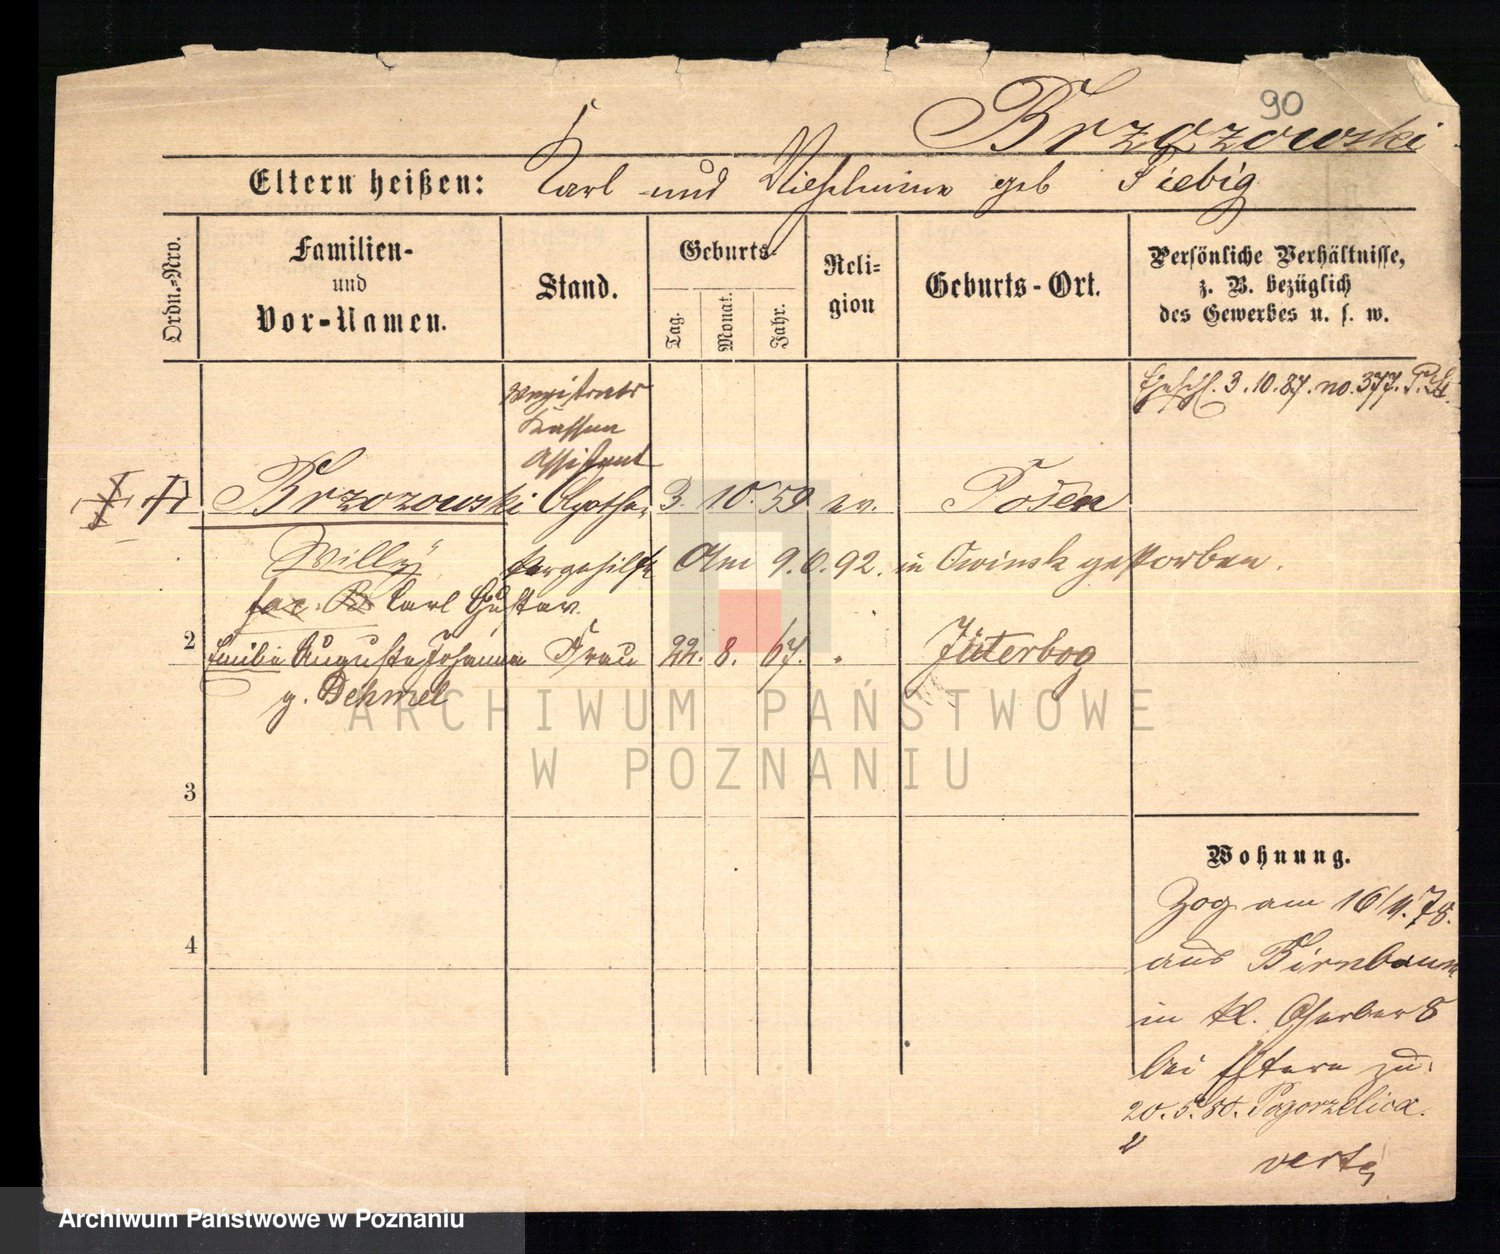 90
Brzozowski
Eltern heißen: Karl und Wilhelmine geb Fiebig
Ordn.-Nro.
Familien-
und
Vor-Namen.
Stand.
Geburts-
Tag.
Monat.
Jahr.
Reli-
gion
Geburts-Ort.
Persönliche Verhältnisse,
z. B. bezüglich
des Gewerbes u. s. w.
3.10.87. no. 377.
Magistrats
Kassen
Assistent
Brzozowski Apothe 3. 10. 59 ev. Posen
Willy kergehilfe Am 9.6.92. in Owinsk gestorben.
Carl Gustav
2 Emilie Auguste Johanna Frau 22. 8. 67. Jüterbog
g. Dehmel
ARCHIWUM PAŃSTWOWE
W POZNANIU
3
4
Wohnung.
Zog am 16/4.78.
aus Birnbaum
in kl. Gerber 8
bei Eltern zu.
20.5.80. Pogorzelica.
verte
Archiwum Państwowe w Poznaniu